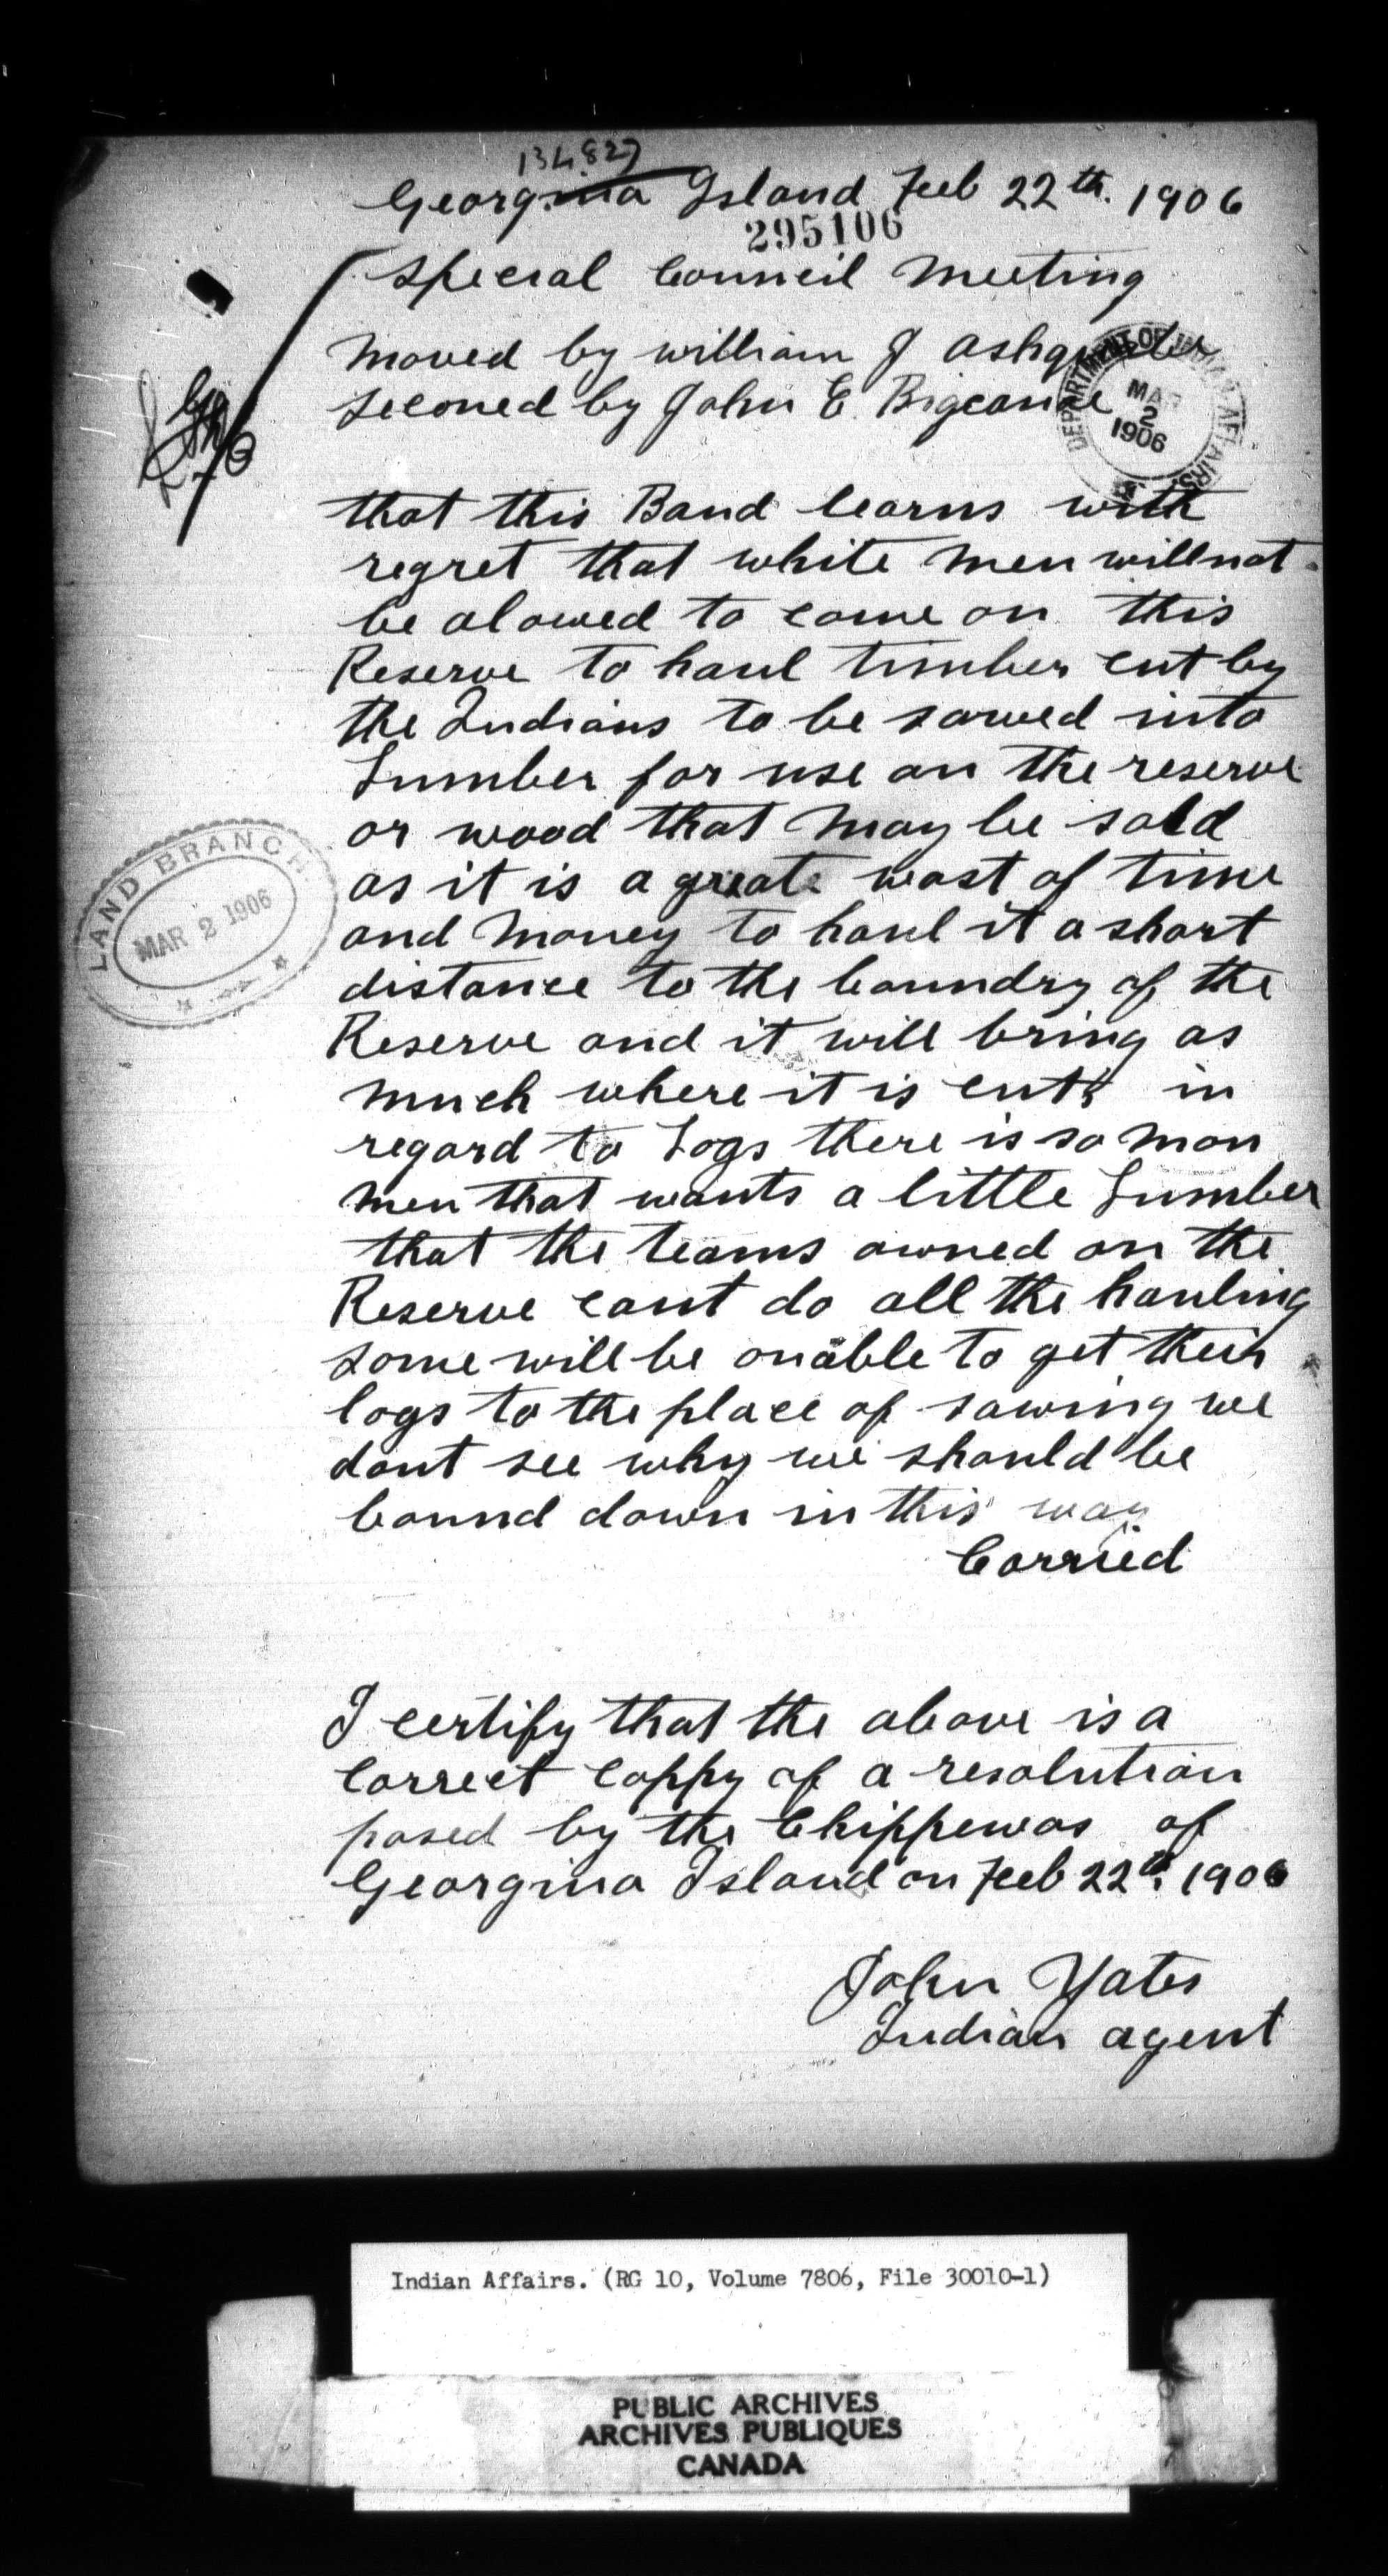 134,827
Georgina Island Feb 22th. 1906
295106
Special Council Meeting
Moved by william J Ashquabe
Seconed by John E. Bigcanoe
DEPARTMENT OF INDIAN AFFAIRS
MAR
2
1906
that this Band learns with
regret that white men will not
be alowed to come on this
Reserve to haul timber cut by
the Indians to be sawed into
Lumber for use on the reserve
or wood that may be sold
as it is a great wast of time
LAND BRANCH
MAR 2 1906
and money to haul it a short
distance to the boundry of the
Reserve and it will bring as
much where it is cut & in
regard to Logs there is so mon
men that wants a little Lumber
that the teams owned on the
Reserve cant do all the hauling
some will be onable to get their
logs to the place of sawing we
dont see why we should be
bound down in this way
Carried
I certify that the above is a
Correct Coppy of a resolution
pased by the Chippewas of
Georgina Island on Feeb 22th. 1906
John Yates
Indian agent
Indian Affairs. (RG 10, Volume 7806, File 30010-1)
PUBLIC ARCHIVES
ARCHIVES PUBLIQUES
CANADA